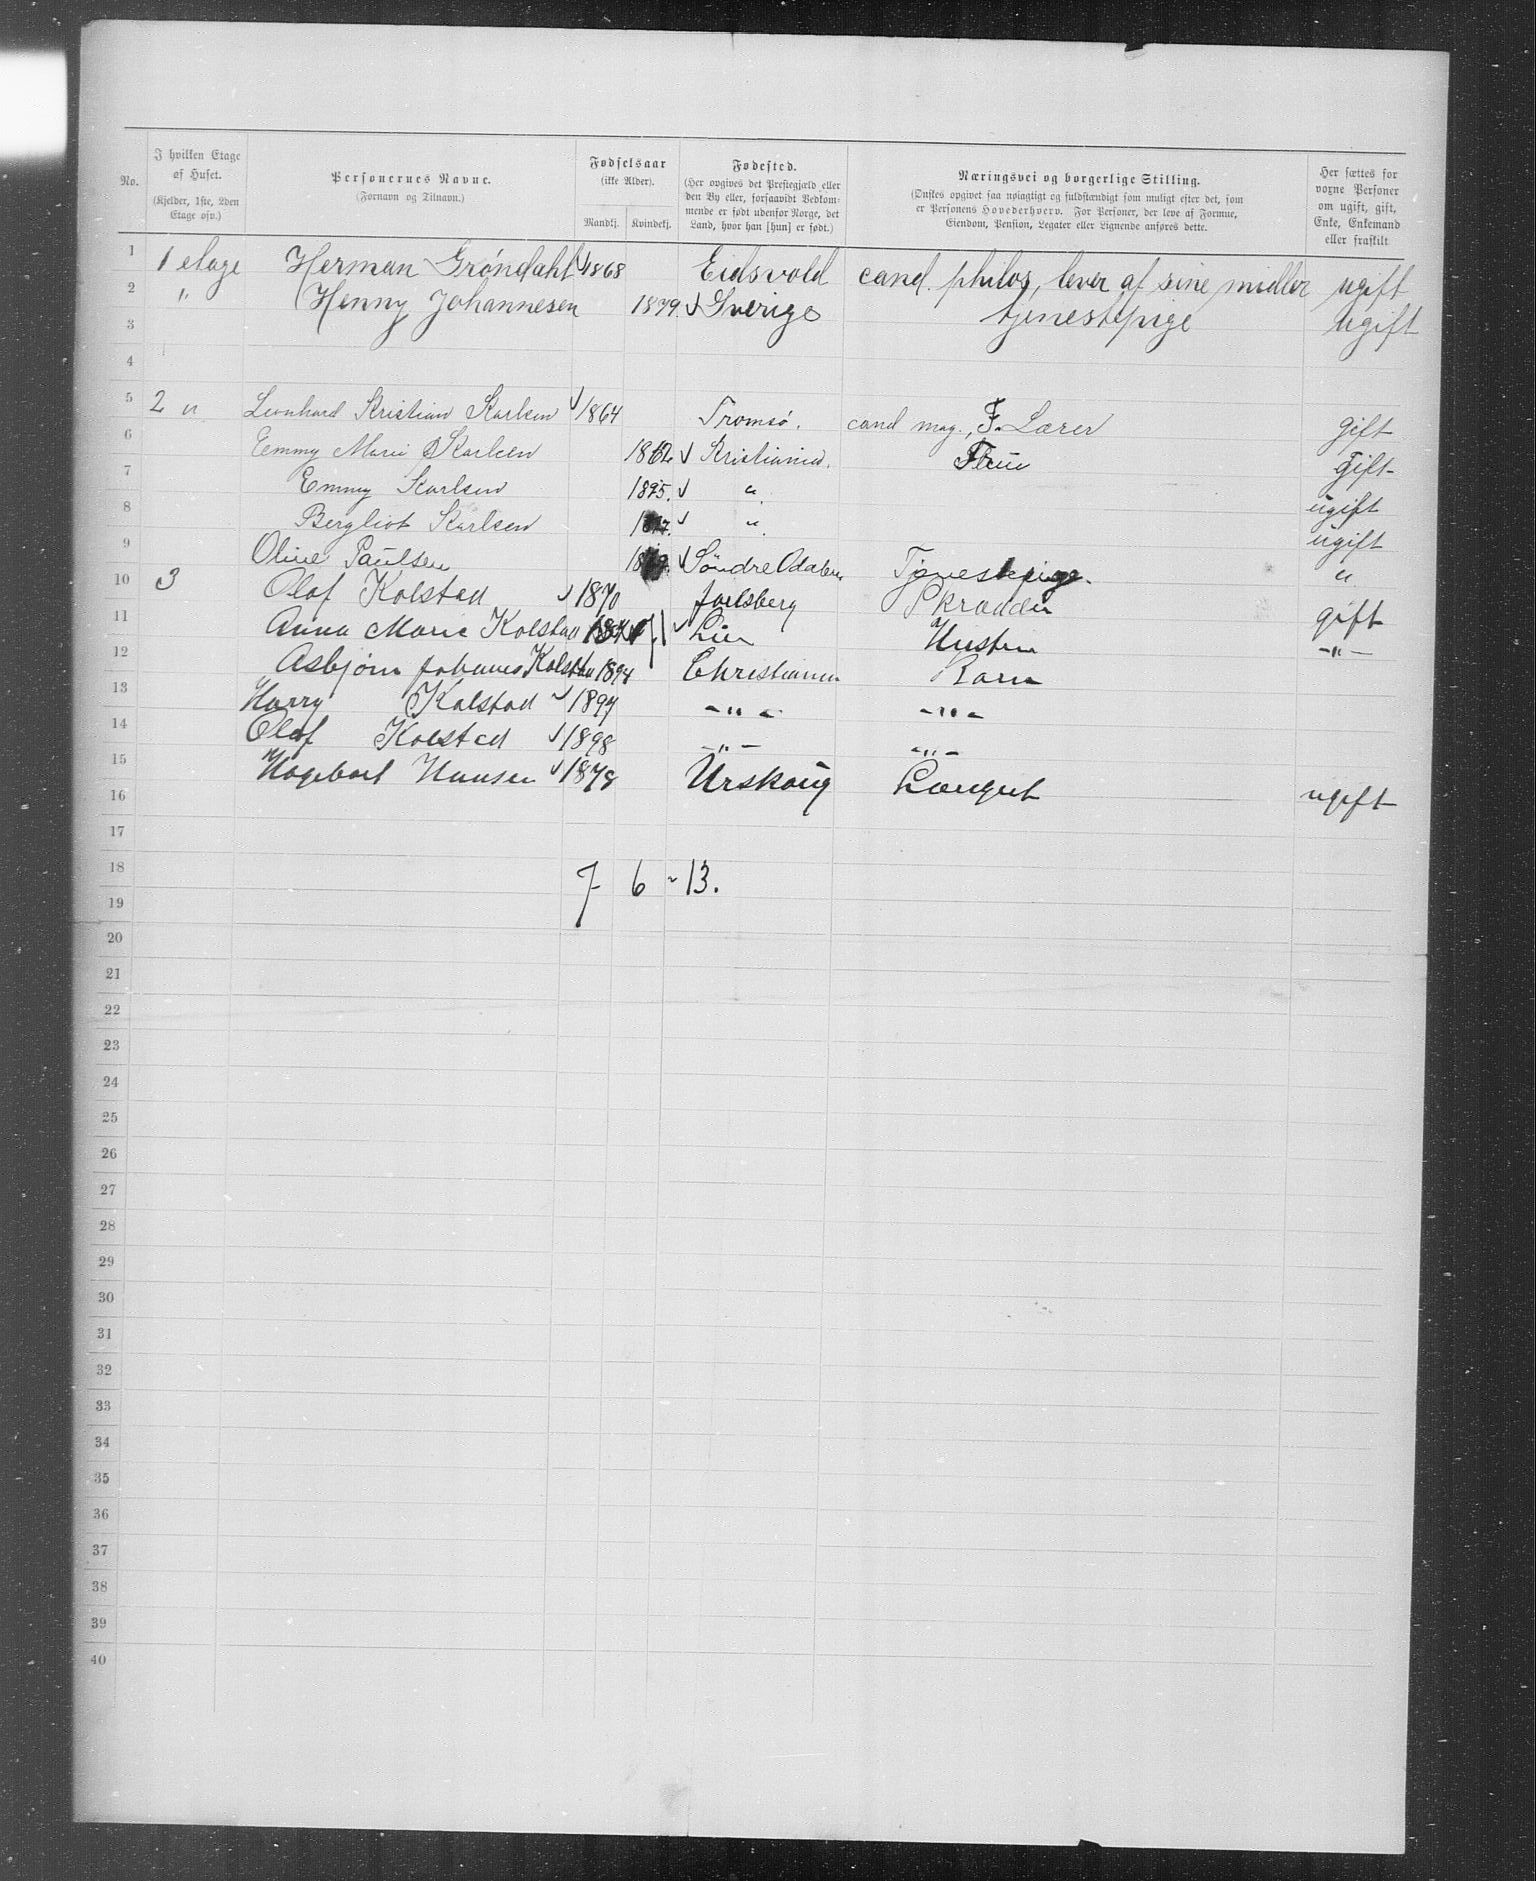 No.
I hvilken Etage af Huset.
(Kjelder, 1ste, 2den Etage osv.)
Personernes Navne.
(Fornavn og Tilnavn.)
Fødselsaar
(ikke Alder).
Mandkj. Kvindekj.
Fødested.
(Her opgives det Prestegjæld eller
den By eller, forsaavidt Vedkom-
mende er født udenfor Norge, det
Land, hvor han [hun] er født.)
Næringsvei og borgerlige Stilling.
(Ønskes opgivet saa nøiagtigt og fuldstændigt som muligt efter det, som
er Personens Hovederhverv. For Personer, der leve af Formue,
Eiendom, Pension, Legater eller Lignende anføres dette.
Her sættes for
voxne Personer
om ugift, gift,
Enke, Enkemand
eller fraskilt
1 1 etage Herman Grøndahl 1868 Eidsvold cand. philos, lever af sine midler ugift
2 " Henny Johannesen 1879. Sverige tjenestepige ugift
3
4
5 2 " Leonhard Kristian Karlsen 1864 Tromsø. cand mag., F. Lærer gift
6 Emmy Marie Karlsen 1862 Kristiania. Frue Gift
7 Emmy Karlsen 1895. " ugift
8 Bergliot Karlsen " ugift
9 Oline Paulsen Söndre Odalen Tjenestepige. "
10 3 Olaf Kolstad 1870 Jarlsberg Skrædder gift
11 Anna Marie Kolstad 71 Lier Hustru -"-
12 Asbjørn Johannes Kolstad 1894 Christiania Barn
13 Harry Kolstad 1897 -"- -"-
14 Olaf Kolstad 1898 -"- -"-
15 Hansen 1878 Urskoug ugift
16
17
18 7 6 - 13.
19
20
21
22
23
24
25
26
27
28
29
30
31
32
33
34
35
36
37
38
39
40